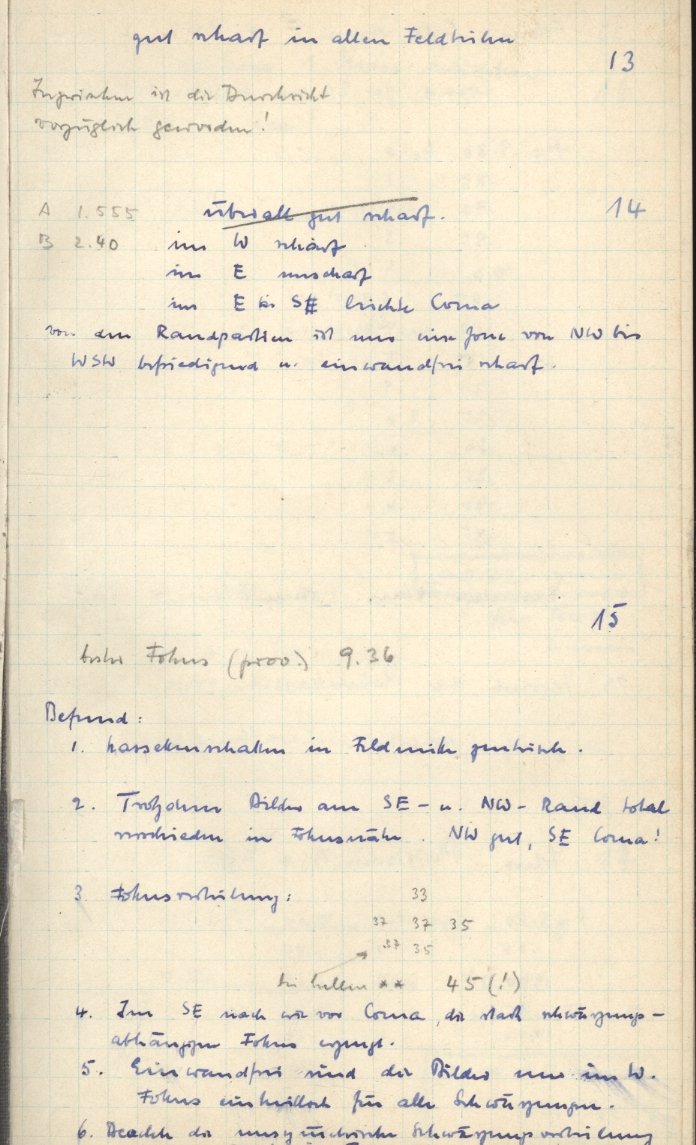 gut scharf in allen Feldteilen
13
Inzwischen ist die Durchsicht
vorzüglich geworden!
A 1.555 überall gut scharf. 14
B 2.40 im W scharf
im E unscharf
im E bis SE leichte Coma
von den Randpartien ist nur eine Zone von NW bis
WSW befriedigend u. einwandfrei scharf.
15
bester Fokus (prov.) 9.36
Befund:
1. Kassettenschatten in Feldmitte zentrisch.
2. Trotzdem Bilder am SE- u. NW-Rand total
verschieden in Fokusnähe. NW gut, SE Coma!
3 Fokusverteilung: 33
37 37 35
37 35
bei hellen ** 45 (!)
4. Im SE nach wie vor Coma, die stark schwärzungs-
abhängigen Fokus erzeugt.
5. Einwandfrei sind die Bilder nur im W.
Fokus einheitlich für alle Schwärzungen.
6. Beachte die unsymmetrische Schwärzungsverteilung